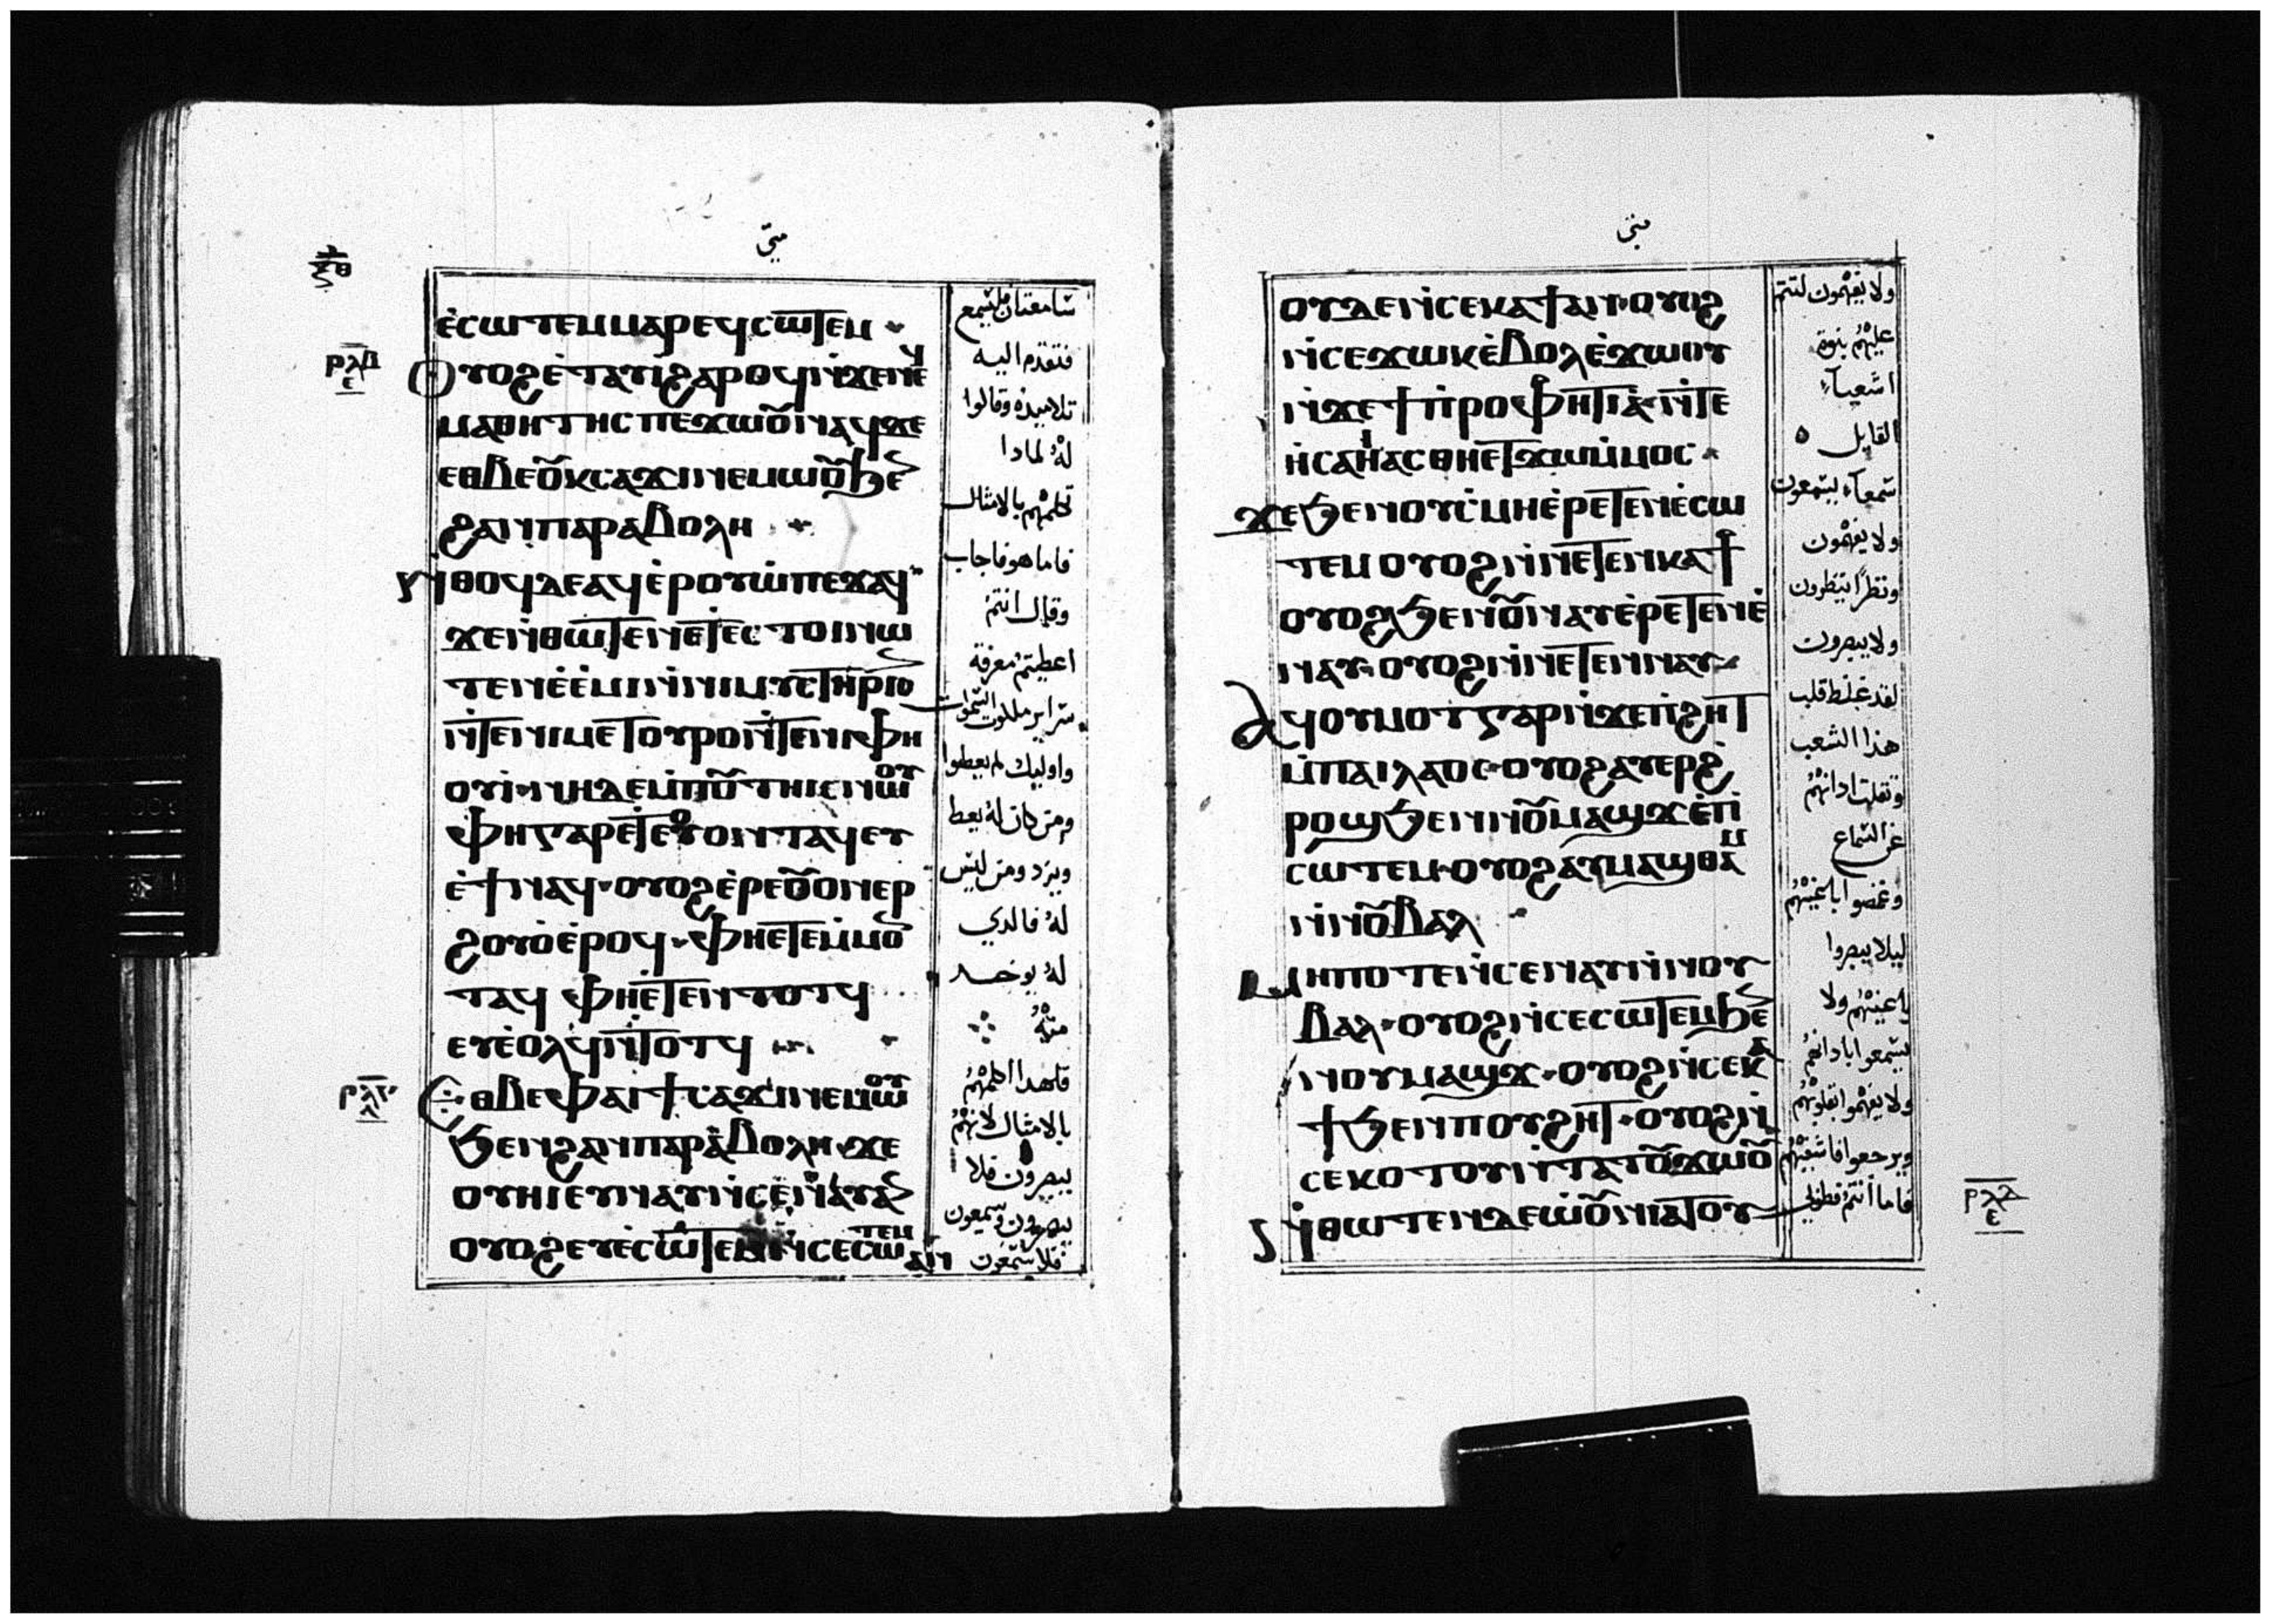 متى
ⲝ̅ⲑ̅
ⲉ̀ⲥⲱⲧⲉⲙ ⲙⲁⲣⲉϥⲥⲱⲧⲉⲙ
ⲣⲗⲇ
ⲉ
ⲟⲩⲟϩ ⲉ̀ⲧⲁⲩⲓ ϩⲁⲣⲟϥ ⲛ̀ϫⲉ ⲛⲉϥ
ⲙⲁⲑⲏⲧⲏⲥ ⲡⲉϫⲱⲟⲩ ⲛⲁϥ ϫⲉ
ⲉⲑⲃⲉⲟⲩ ⲕⲥⲁϫⲓ ⲛⲉⲙⲱⲟⲩ ϧⲉⲛ
ϩⲁⲛⲡⲁⲣⲁⲃⲟⲗⲏ
ⲛ̀ⲑⲟϥ ⲇⲉ ⲁϥⲉ̀ⲣⲟⲩⲱ̀ ⲡⲉϫⲁϥ
ϫⲉ ⲛ̀ⲑⲱⲧⲉⲛ ⲉⲧⲉⲥⲧⲟⲓ ⲛⲱ
ⲧⲉⲛ ⲉ̀ⲉ̀ⲙⲓ ⲛ̀ⲛⲓⲙⲩⲥⲧⲏⲣⲓⲟⲛ
ⲛ̀ⲧⲉ ⲛⲓⲙⲉⲧⲟⲩⲣⲟ ⲛ̀ⲧⲉ ⲛⲓⲫⲏ
ⲟⲩⲓ̀ ⲛⲏ ⲇⲉ ⲙ̀ⲡⲟⲩⲧⲏⲓⲥ ⲛⲱⲟⲩ
ⲫⲏ ⲅⲁⲣ ⲉⲧⲉ ⲟⲩⲟⲛⲧⲁϥ ⲉⲩ
ⲉ̀ϯ ⲛⲁϥ ⲟⲩⲟϩ ⲉ̀ⲣⲉ ⲟⲩⲟⲛ ⲉⲣ
ϩⲟⲩⲟ̀ ⲉ̀ⲣⲟϥ ⲫⲏ ⲉ̀ⲧⲉ ⲙ̀ⲙⲟⲛ
ⲧⲁϥ ⲫⲏ ⲉ̀ⲧⲉⲛⲧⲟⲧϥ
ⲉⲩⲉ̀ⲟⲗϥ ⲛ̀ⲧⲟⲧϥ
ⲣⲗⲅ
ⲉⲑⲃⲉ ⲫⲁⲓ ϯⲥⲁϫⲓ ⲛⲉⲙⲱⲟⲩ
ϧⲉⲛ ϩⲁⲛⲡⲁⲣⲁⲃⲟⲗⲏ ϫⲉ
ⲟⲩⲏⲓ ⲉⲩⲛⲁⲩ ⲛ̀ⲥⲉⲛⲁⲩ ⲁⲛ
ⲟⲩⲟϩ ⲉⲩⲉ̀ⲥⲱⲧⲉⲙ ⲛ̀ⲥⲉⲥⲱⲧⲉⲙ ⲁⲛ
سامعتان فليسمع
فتقدم اليه
تلاميذه وقالوا
له لمادا
تكلمهم بالامثال
فاما هو فاجاب
وقال انتم
اعطيتم معرفة
سراير ملكوت السموات
واوليك لم يعطوا
ومن كان له يعط
ويزد ومن ليس
له فالدي
له يوخد
منه
فلهدا اكلمهم
بالامثال لانهم
يبصرون فلا
يبصرون ويسمعون
فلا يسمعون
متى
ⲟⲩⲇⲉ ⲛ̀ⲥⲉⲕⲁϯ ⲁⲛ ⲟⲩⲟϩ
ⲛ̀ⲥⲉϫⲱⲕ ⲉ̀ⲃⲟⲗ ⲉ̀ϫⲱⲟⲩ
ⲛ̀ϫⲉ ϯⲡ̀ⲣⲟⲫⲏⲧⲓⲁ ⲛ̀ⲧⲉ
ⲏ̀ⲥⲁⲏ̀ⲁⲥ ⲑⲏ ⲉⲧϫⲱ ⲙ̀ⲙⲟⲥ
ϫⲉ ϧⲉⲛ ⲟⲩⲥ̀ⲙⲏ ⲉ̀ⲣⲉⲧⲉⲛⲉ̀ⲥⲱ
ⲧⲉⲙ ⲟⲩⲟϩ ⲛ̀ⲛⲉⲧⲉⲛⲕⲁϯ
ⲟⲩⲟϩ ϧⲉⲛ ⲟⲩⲛⲁⲩ ⲉ̀ⲣⲉⲧⲉⲛⲉ̀
ⲛⲁⲩ ⲟⲩⲟϩ ⲛ̀ⲛⲉⲧⲉⲛⲛⲁⲩ
ⲁϥⲟⲩⲙⲟⲧ ⲅⲁⲣ ⲛ̀ϫⲉ ⲡ̀ϩⲏⲧ
ⲙ̀ⲡⲁⲓⲗⲁⲟⲥ ⲟⲩⲟϩ ⲁⲩⲉⲣϩ̀
ⲣⲟϣ ϧⲉⲛ ⲛⲟⲩⲙⲁϣϫ ⲉ̀ⲡ̀
ⲥⲱⲧⲉⲙ ⲟⲩⲟϩ ⲁⲩⲙⲁϣⲑⲁⲙ
ⲛ̀ⲛⲟⲩⲃⲁⲗ
ⲙⲏⲡⲟⲧⲉ ⲛ̀ⲥⲉⲛⲁⲩ ⲛ̀ⲛⲟⲩ
ⲃⲁⲗ ⲟⲩⲟϩ ⲛ̀ⲥⲉⲥⲱⲧⲉⲙ ϧⲉⲛ
ⲛⲟⲩⲙⲁϣϫ ⲟⲩⲟϩ ⲛ̀ⲥⲉⲕⲁ
ϯ ϧⲉⲛ ⲡⲟⲩϩⲏⲧ ⲟⲩⲟϩ ⲛ̀
ⲥⲉⲕⲟⲧⲟⲩ ⲛ̀ⲧⲁⲧⲟⲩϫⲱⲟⲩ
ⲛ̀ⲑⲱⲧⲉⲛ ⲇⲉ ⲱ̀ⲟⲩⲛⲓⲁⲧⲟⲩ
ولا يفهمون لتتم
عليهم نبوة
اشعياء
القايل
سمعاء يسمعون
ولا يفهمون
ونظرًا ينظرون
ولا يبصرون
لقد غلظ قلب
هذا الشعب
وثقلت ادانهم
عن السماع
وغمضوا اعينهم
ليلا يبصروا
باعينهم ولا
يسمعوا بادانهم
ولا يفهموا بقلوبهم
ويرجعوا فاشفيهم
فاما انتم فطوبى
ⲣⲗⲇ
ⲉ